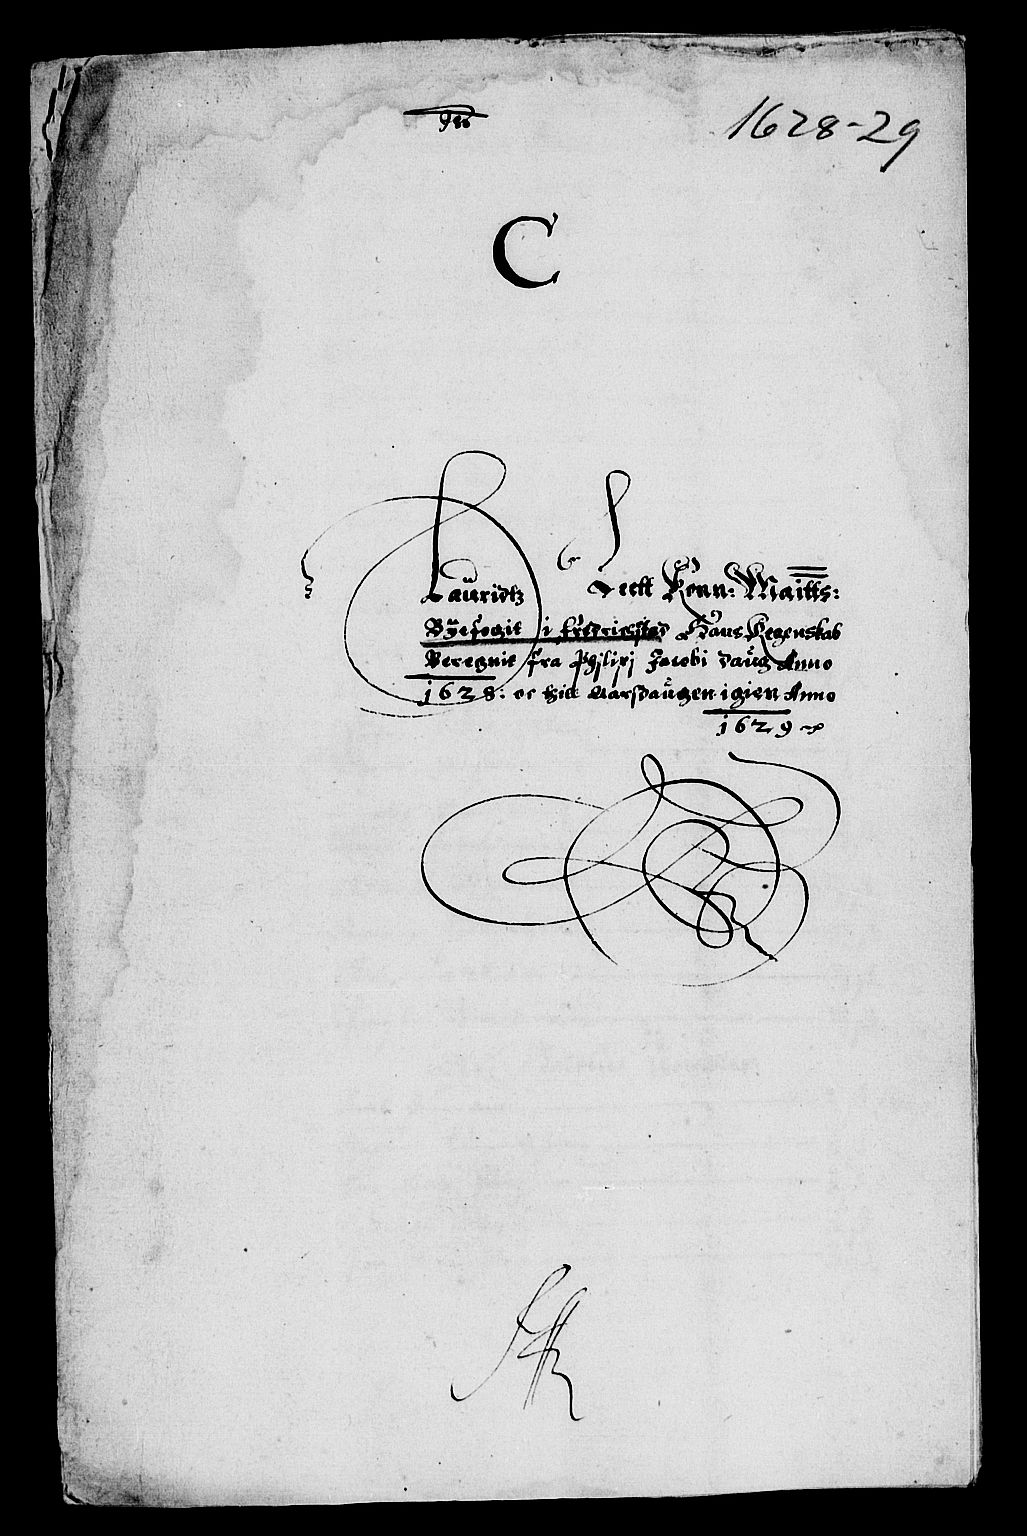 1628-29
C
Lauridtz Leett Konn: Maitts:
Byefogit i Fredrichstad Hans Regenskab
Beregnit fra Philipi Jacobi daug Anno
1628: oc till Aarsdaugen igien Anno
1629